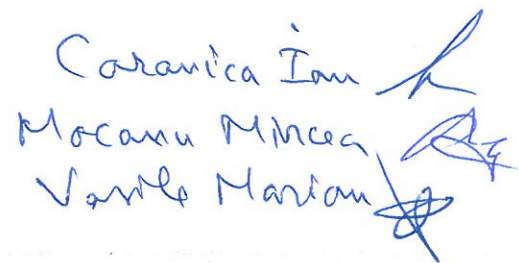 Caranica Ion
Mocanu Mircea
Vasile Marian